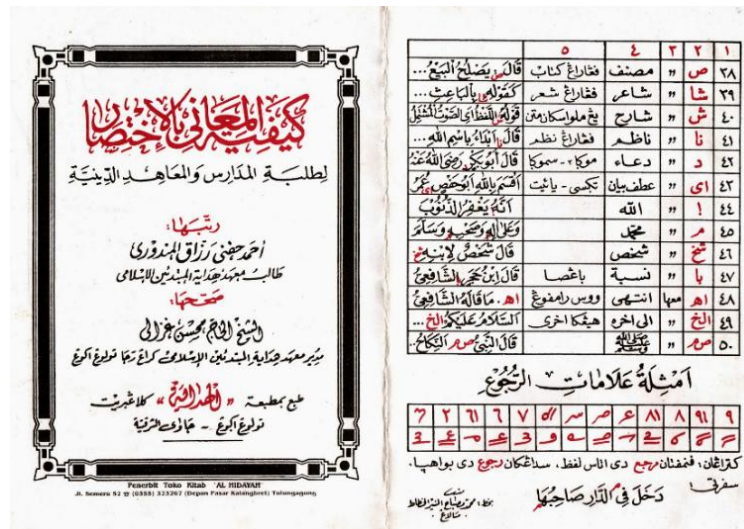 كيفية المعاني بالإختصار
لطلبة المدارس والمعاهد الدينية
رتبها:
أحمد حفني رزاق البندوري
طالب معهد هداية المبتدئين الإسلامي
صححها:
الشيخ الحاج محسن غزالي
مدير معهد هداية المبتدئين الإسلامي كراغ رجا تولوغ اكوغ
طبع بمطبعة « الهداية » كلاغبريت
تولوغ اكوغ - جاوى الشرقية
Penerbit Toko Kitab 'AL HIDAYAH'
Jl. Semeru 52 ☎ (0355) 323267 (Depan Pasar Kalangbret) Tulungagung
١ ٢ ٣ ٤ ٥
٣٨ ص " مصنف فڠاراڠ كتاب قال ص يصلح البيع ...
٣٩ شا " شاعر فڠاراڠ شعر كقوله بالباعث ...
٤٠ ش " شارح يڠ ملواسكان متن قوله اللفظ أي الصوت المشتمل
٤١ نا " ناظم فڠاراڠ نظم قال نا ابدأ باسم الله ...
٤٢ د " دعاء موكا٢ - سموكا قال أبو بكر رضي الله عنه
٤٣ اى " عطف بيان تكسى - يائيت أقسم بالله أبو حفص عمر
٤٤ ! " الله أنه يغفر الذنوب
٤٥ م " محمد وعلى آله وصحبه وسلم
٤٦ شخ " شخص قال شخص لابنه
٤٧ با " نسبة باڠصا قال ابن حجر الشافعي
٤٨ اهـ معها انتهى ووس رامفوڠ اهـ. ما قاله الشافعي
٤٩ الخ " الى اخره هيڠكا اخرى السلام عليكم الخ ...
٥٠ صم " صلى الله عليه وسلم قال النبي صم النكاح ...
أمثلة علامات الرجوع
كتراڠان: فنمفتان مرجع دى اتاس لفظ، سداڠكان رجوع دى بواهڽا.
سفرتي:
دخل في الدار صاحبها